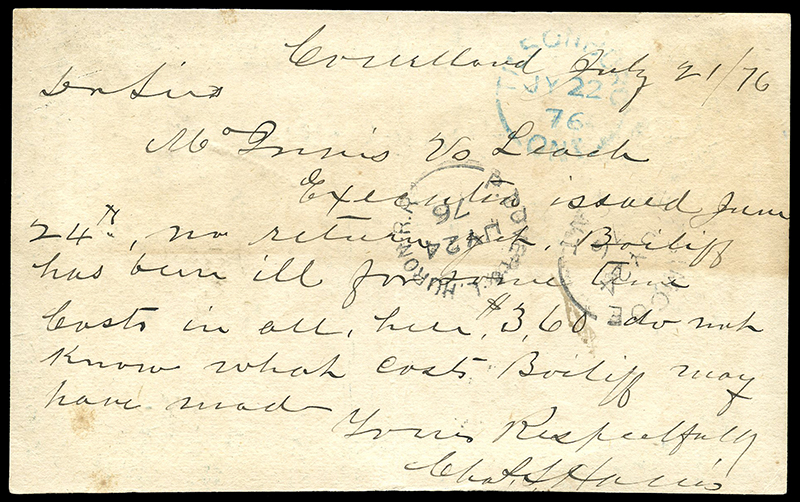 Courtland July 21/76
Dr Sir
McInnis Vs Leach
Execution issued June
24th, no return yet. Bailiff
has been ill for some time
Costs in all, here, $3,60 do not
know what costs Bailiff may
have made
Yours Respectfully
Chas. S Harris
JY 22
76
ONT
PORT DOVER & L. HURON R.R.
JY 24
76
SIMCOE